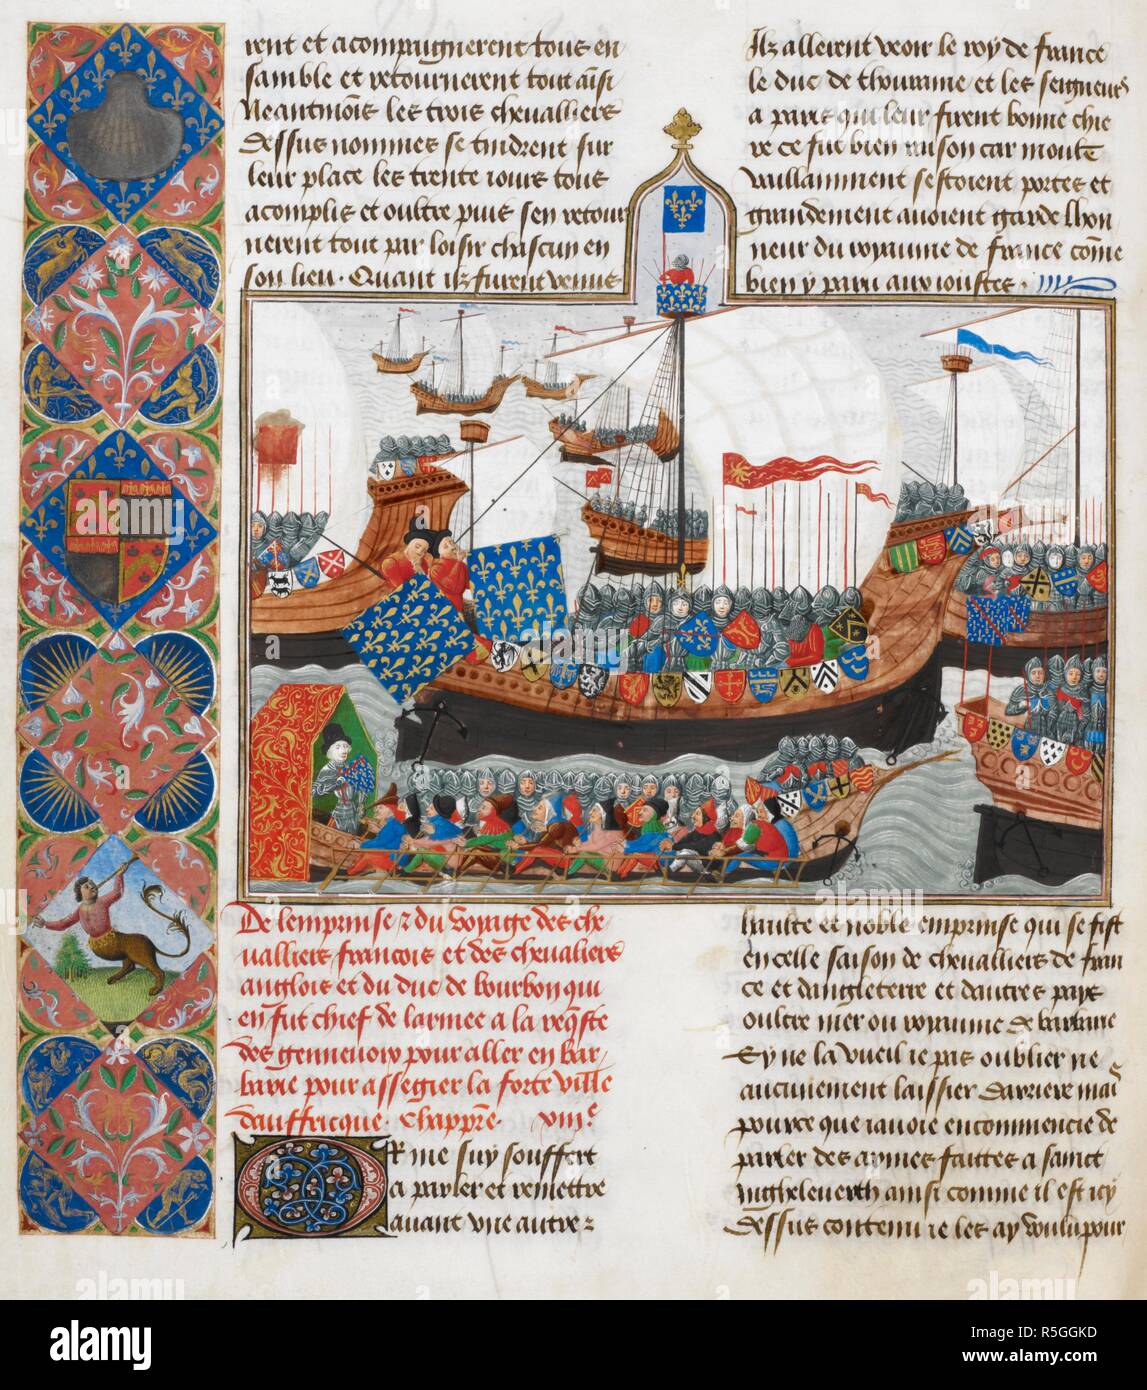 rent et acompaignerent tous en
samble et retournerent tout aīsi
Neantmoīs les trois chevalliers
dessus nommes se tindrent sur
leur place les trente iours tous
acomplis et oultre puis sen retour
nerent tout par loisir chascun en
son lieu. Quant ilz furent venus
Ilz allerent veoir le roy de france
le duc de thouraine et les seigneurs
a paris qui leur firent bonne chie
re ce fut bien raison car moult
vaillamment sestoient portes et
grandement avoient garde lhon
neur du royaume de france cōme
bien y paru aux ioustes.
De lemprinse & du voyage des che
valliers francois et des chevaliers
anglois et du duc de bourbon qui
en fut chief de larmee a la reqste
des gennevois pour aller en bar-
barie pour assegier la forte ville
dauffricque. Chappre. viiie
OR me suy souffert
a parler et remettre
avant une autre
haulte et noble emprinse qui se fist
en celle saison de chevalliers de fran
ce et dangleterre et dautres pays
oultre mer ou royaume de barbarie
Sy ne la vueil ie pas oublier ne
aucunement laissier darriere mais
pource que iavoie encommencie de
parler des armes faittes a sainct
ingheleverth ainsi comme il est icy
dessus contenu ie les ay voulu pour
a
alamy
alamy stock photo
R5GGKD
www.alamy.com